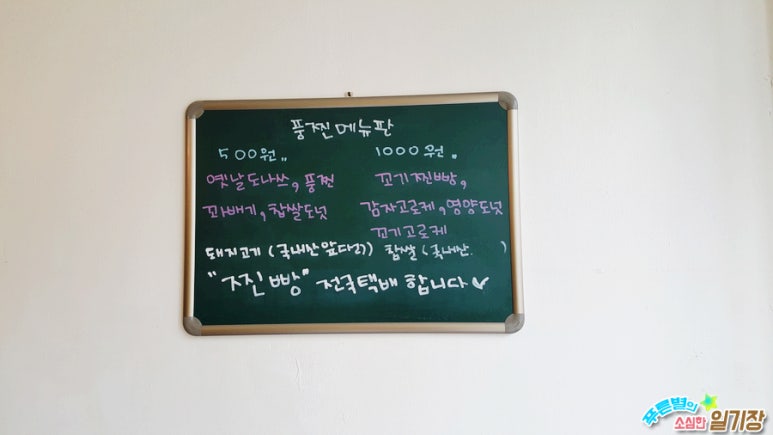 풍찐메뉴판
500원..
1000원.
옛날도나쓰, 풍찐
꼬기찐빵,
꽈배기, 찹쌀도넛
감자고로케, 영양도넛
꼬기고로케
돼지고기 (국내산 앞다리) 찹쌀 (국내산. )
"찐빵" 전국택배 합니다
푸른별의
소심한 일기장